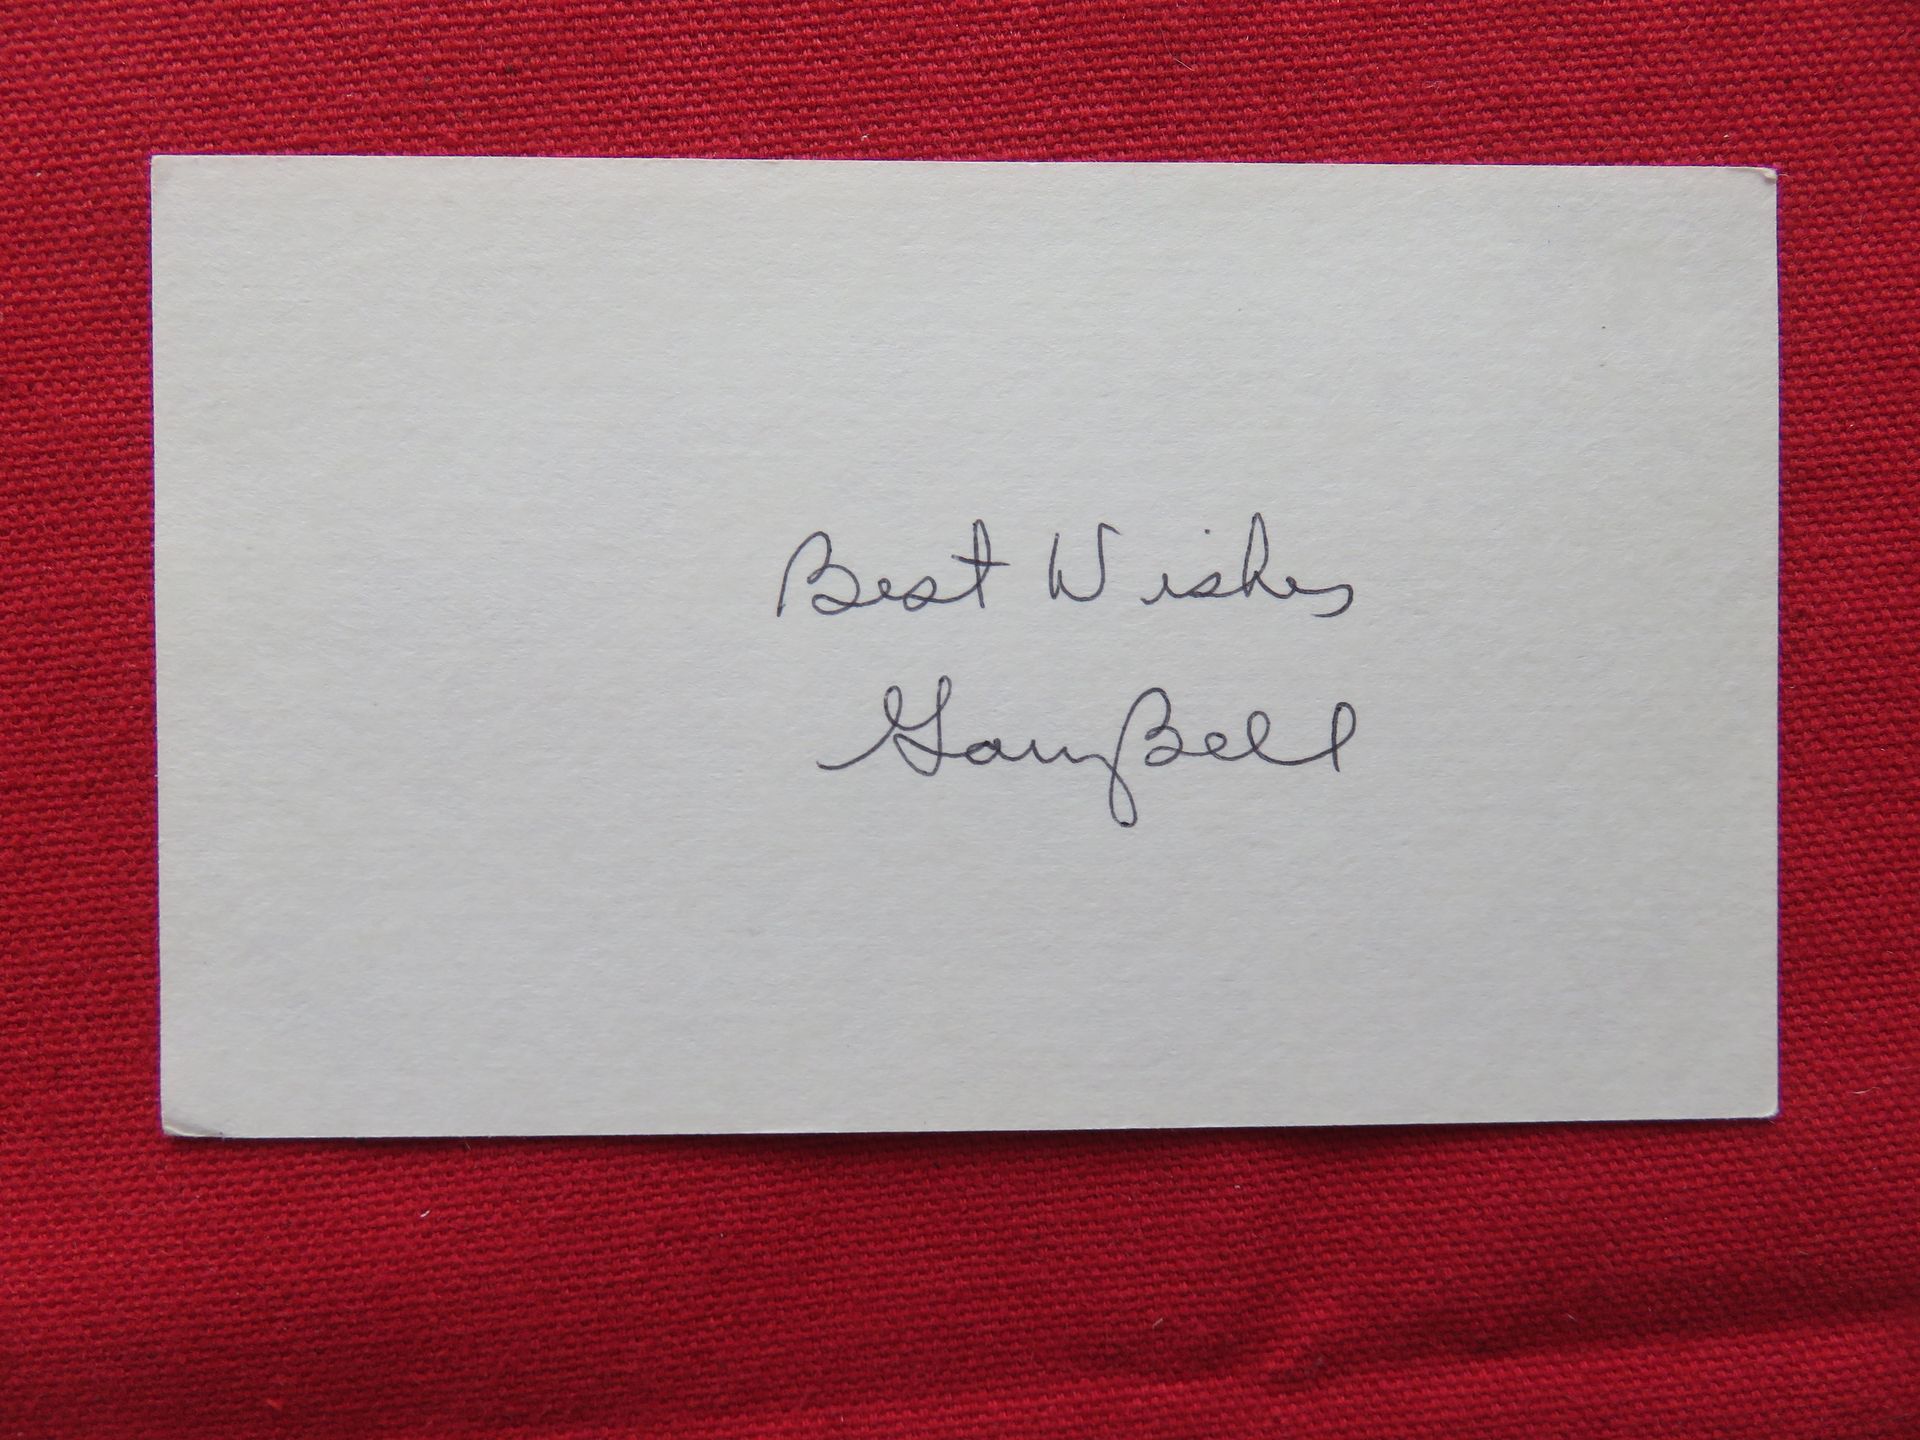 Best Wishes
Gary Bell